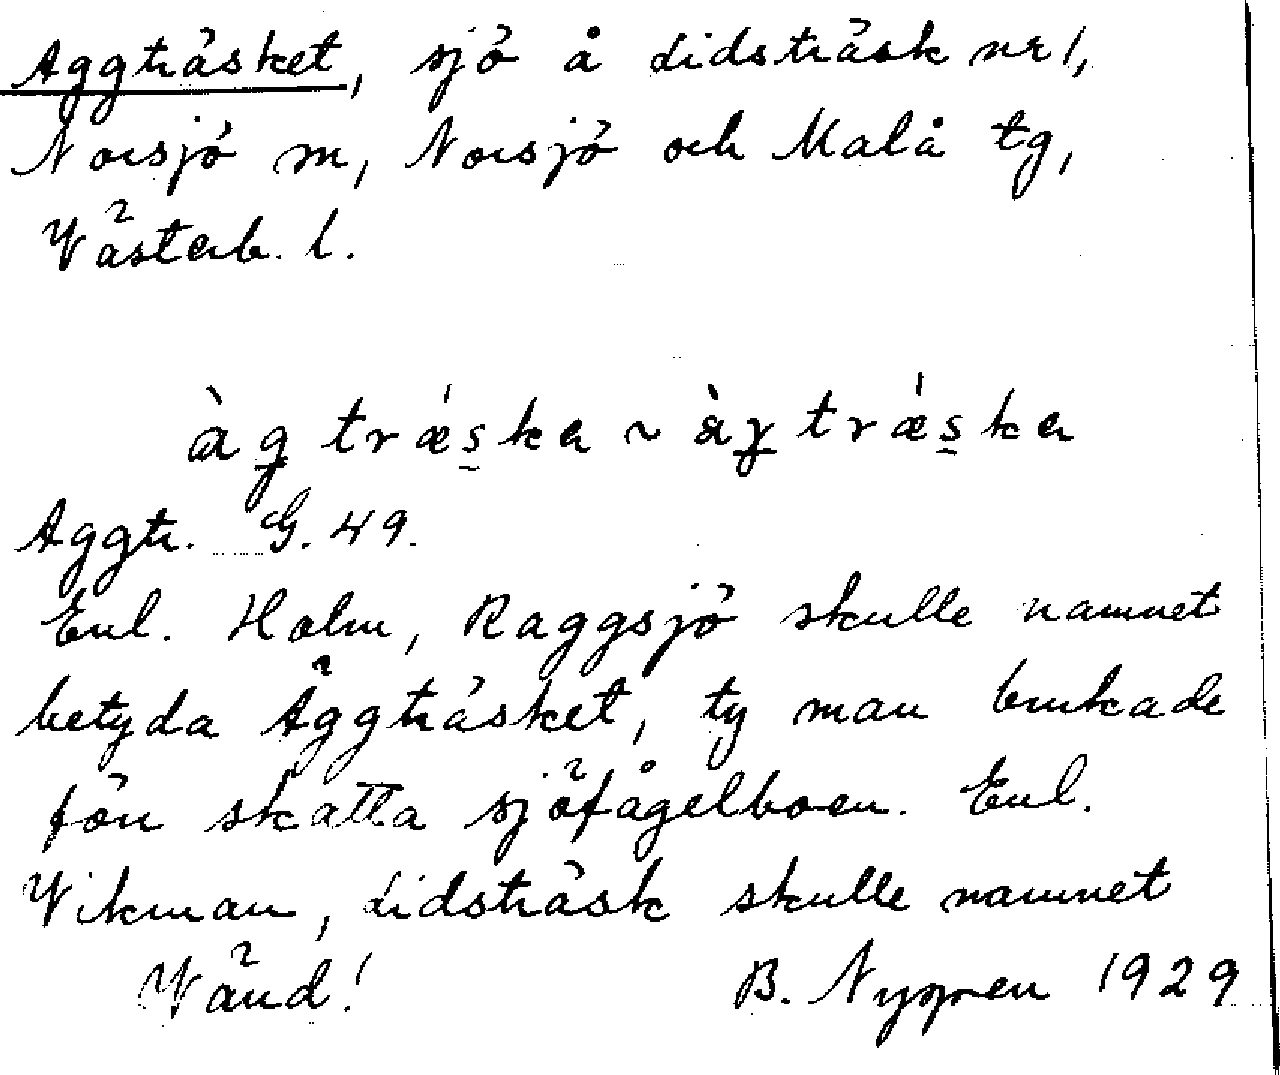 Aggträsket, sjö å Lidsträsk nr 1,
Norsjö sn, Norsjö och Malå tg,
Västerb. l.
àg trǽska ~ àɣ trǽska
Aggtr. G. 49.
Enl. Holm, Raggsjö skulle namnet
betyda Äggträsket, ty man brukade
förr skatta sjöfågelboen. Enl.
Vikman, Lidsträsk skulle namnet
Vänd! B. Nygren 1929